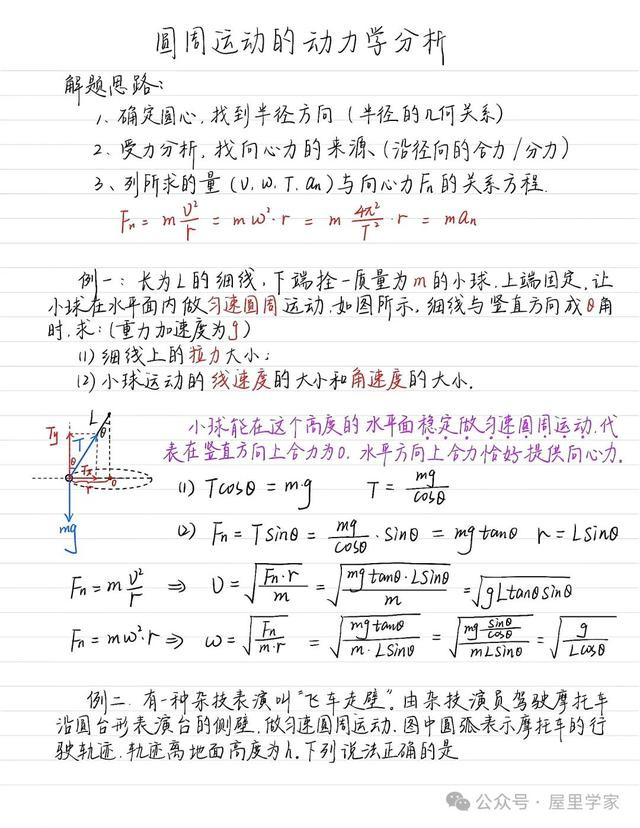 圆周运动的动力学分析
解题思路:
1、确定圆心,找到半径方向(半径的几何关系)
2、受力分析,找向心力的来源、(沿径向的合力/分力)
3、列所求的量(υ.ω.T.an)与向心力Fn的关系方程.
Fn = m υ²/r = mω²·r = m 4π²/T² ·r = man
例一:长为L的细线,下端拴一质量为m的小球.上端固定,让
小球在水平面内做匀速圆周运动.如图所示,细线与竖直方向成θ角
时.求:(重力加速度为g)
(1)细线上的拉力大小;
(2)小球运动的线速度的大小和角速度的大小.
L
θ
Ty
T
θ
Tx
r
o
mg
小球能在这个高度的水平面稳定做匀速圆周运动.代
表在竖直方向上合力为0.水平方向上合力恰好提供向心力.
(1) Tcosθ = mg T = mg/cosθ
(2) Fn = Tsinθ = mg/cosθ ·sinθ = mgtanθ r = Lsinθ
Fn = m υ²/r ⇒ υ = √(Fn·r/m) = √(mgtanθ·Lsinθ/m) = √(gLtanθsinθ)
Fn = mω²·r ⇒ ω = √(Fn/m·r) = √(mgtanθ/m·Lsinθ) = √(mg sinθ/cosθ/mLsinθ) = √(g/Lcosθ)
例二.有一种杂技表演叫"飞车走壁".由杂技演员驾驶摩托车
沿圆台形表演台的侧壁.做匀速圆周运动.图中圆弧表示摩托车的行
驶轨迹.轨迹离地面高度为h.下列说法正确的是
公众号·屋里学家